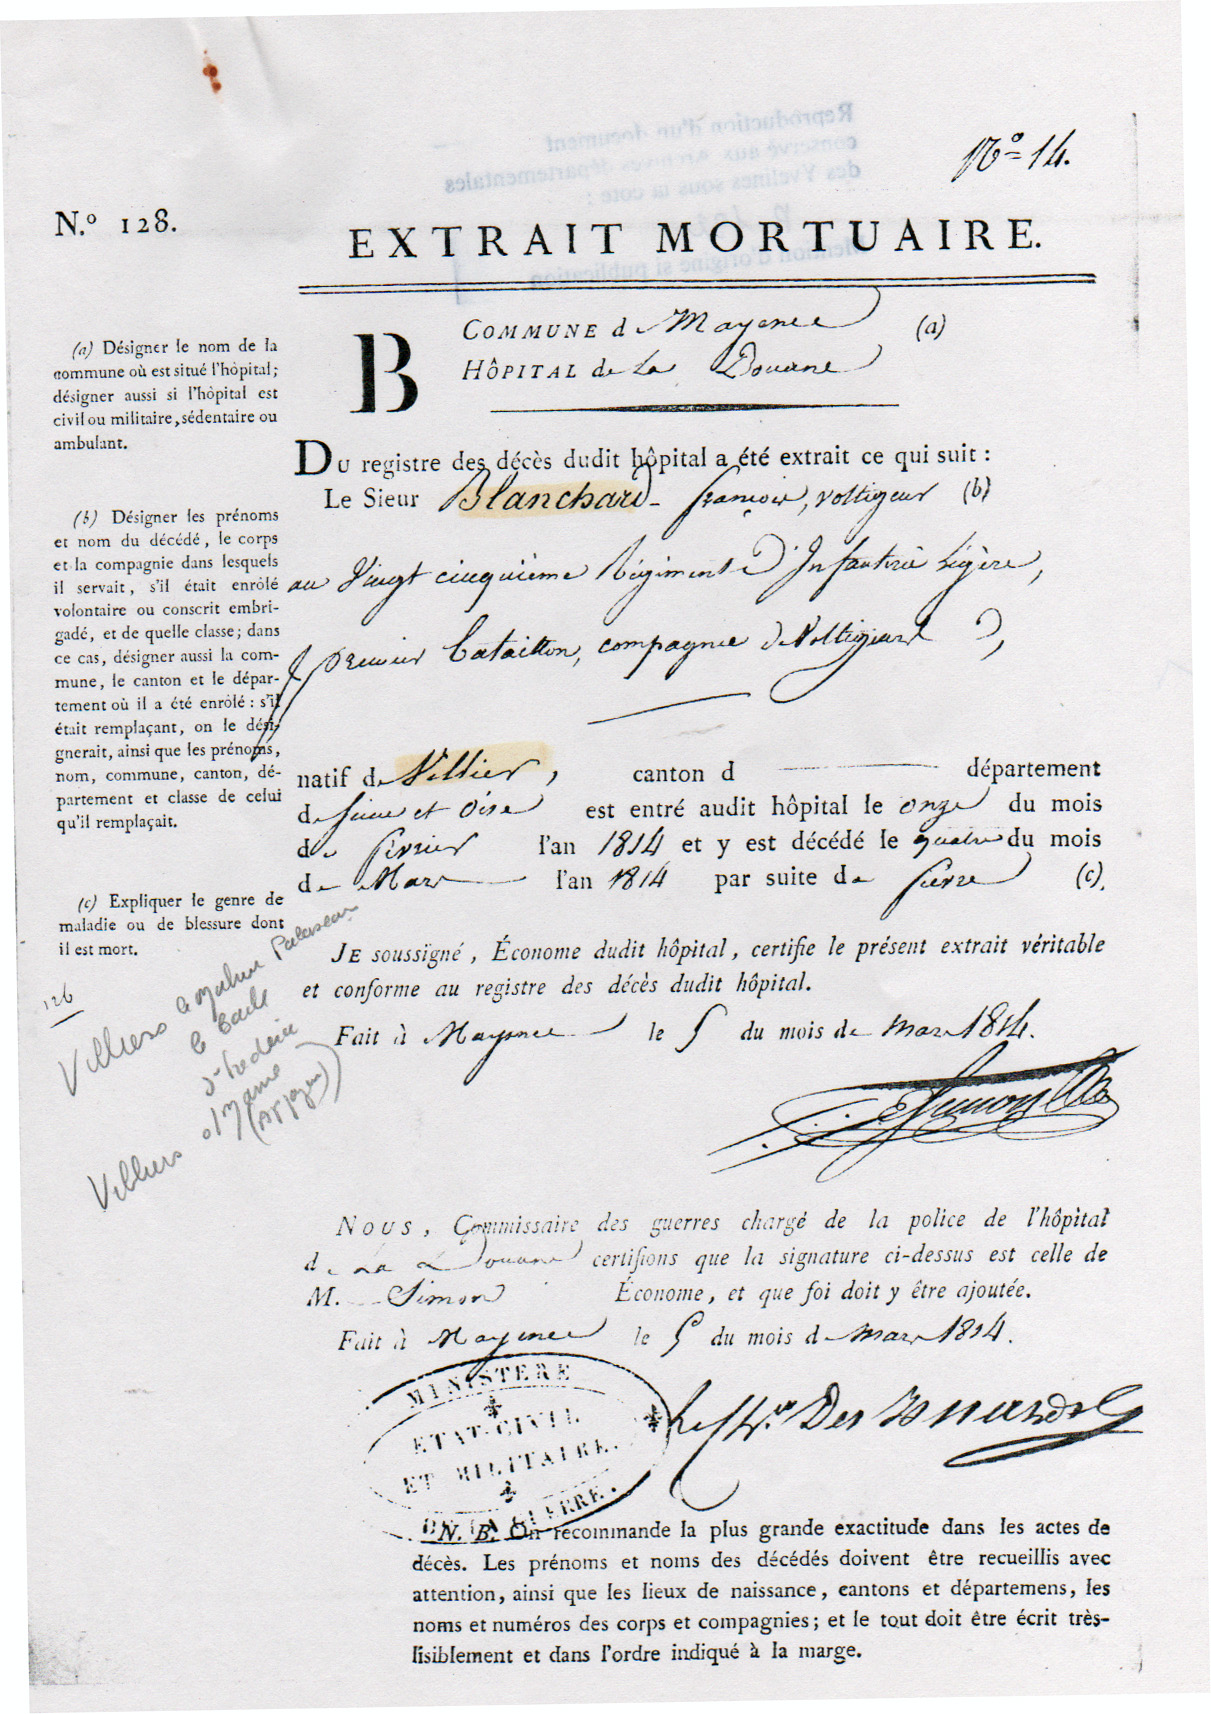 Nº 14.
N.º 128.
EXTRAIT MORTUAIRE.
B
COMMUNE de Mayence (a)
HÔPITAL de La Douane
(a) Désigner le nom de la
commune où est situé l'hôpital;
désigner aussi si l'hôpital est
civil ou militaire, sédentaire ou
ambulant.
DU registre des décès dudit hôpital a été extrait ce qui suit :
Le Sieur Blanchard françois, voltigeur (b)
au Vingt cinquième Régiment d'Infanterie Légère,
premier Bataillon, compagnie de Voltigeurs
(b) Désigner les prénoms
et nom du décédé, le corps
et la compagnie dans lesquels
il servait, s'il était enrôlé
volontaire ou conscrit embri-
gadé, et de quelle classe; dans
ce cas, désigner aussi la com-
mune, le canton et le dépar-
tement où il a été enrôlé : s'il
était remplaçant, on le dési-
gnerait, ainsi que les prénoms,
nom, commune, canton, dé-
partement et classe de celui
qu'il remplaçait.
natif de Villier, canton d département
de Seine et Oise est entré audit hôpital le onze du mois
de février l'an 1814 et y est décédé le quatre du mois
de Mars l'an 1814 par suite de fievre (c).
(c) Expliquer le genre de
maladie ou de blessure dont
il est mort.
JE soussigné, Économe dudit hôpital, certifie le présent extrait véritable
et conforme au registre des décès dudit hôpital.
Fait à Mayence le 5 du mois de mars 1814.
126
Villiers le Bacle
Palaiseau
Villiers
NOUS, Commissaire des guerres chargé de la police de l'hôpital
de La Douane certifions que la signature ci-dessus est celle de
M. Simon Économe, et que foi doit y être ajoutée.
Fait à Mayence le 5 du mois de mars 1814.
MINISTERE
ETAT-CIVIL
ET MILITAIRE.
DE LA GUERRE.
N. B. On recommande la plus grande exactitude dans les actes de
décès. Les prénoms et noms des décédés doivent être recueillis avec
attention, ainsi que les lieux de naissance, cantons et départemens, les
noms et numéros des corps et compagnies; et le tout doit être écrit très-
lisiblement et dans l'ordre indiqué à la marge.
Reproduction d'un document
conservé aux Archives départementales
des Yvelines sous la cote :
Mention d'origine si publication